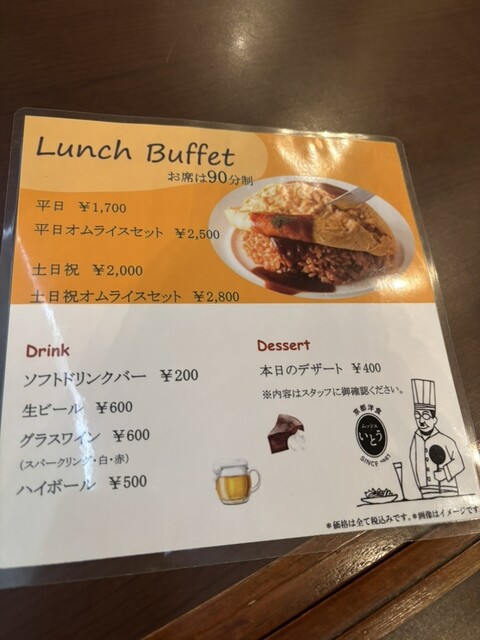 Lunch Buffet
お席は90分制
平日 ¥1,700
平日オムライスセット ¥2,500
土日祝 ¥2,000
土日祝オムライスセット ¥2,800
Drink
ソフトドリンクバー ¥200
生ビール ¥600
グラスワイン ¥600
(スパークリング・白・赤)
ハイボール ¥500
Dessert
本日のデザート ¥400
※内容はスタッフに御確認ください。
京都洋食
ムッシュ
いとう
SINCE 1981
*価格は全て税込みです。*画像はイメージです